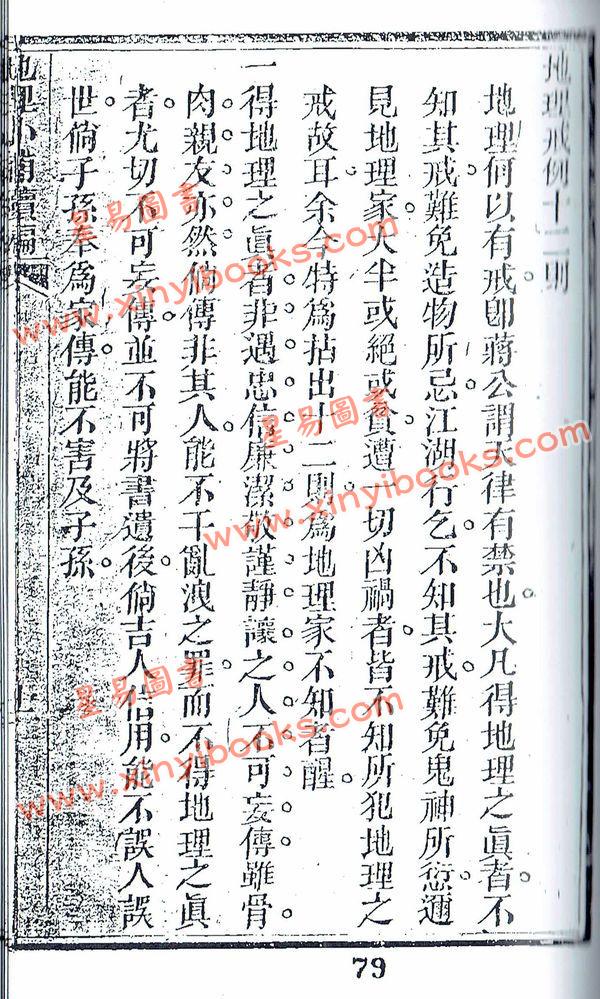 地理戒例十二則
地理何以有戒卽蔣公謂天律有禁也大凡得地理之眞者不
知其戒難免造物所忌江湖行乞不知其戒難免鬼神所愆邇
見地理家大半或絕或貧遭一切凶禍者皆不知所犯地理之
戒故耳余今特爲拈出十二則爲地理家不知者醒
一得地理之眞者非遇忠信廉潔敬謹靜讓之人不可妄傳雖骨
肉親友亦然倘傳非其人能不干亂洩之罪而不得地理之眞
者尤切不可妄傳並不可將書遺後倘吉人信用能不誤人誤
世倘子孫奉爲家傳能不害及子孫
地理小補續編
79
星易圖書
www.xinyibooks.com
星易圖書
www.xinyibooks.com
星易圖書
www.xinyibooks.com